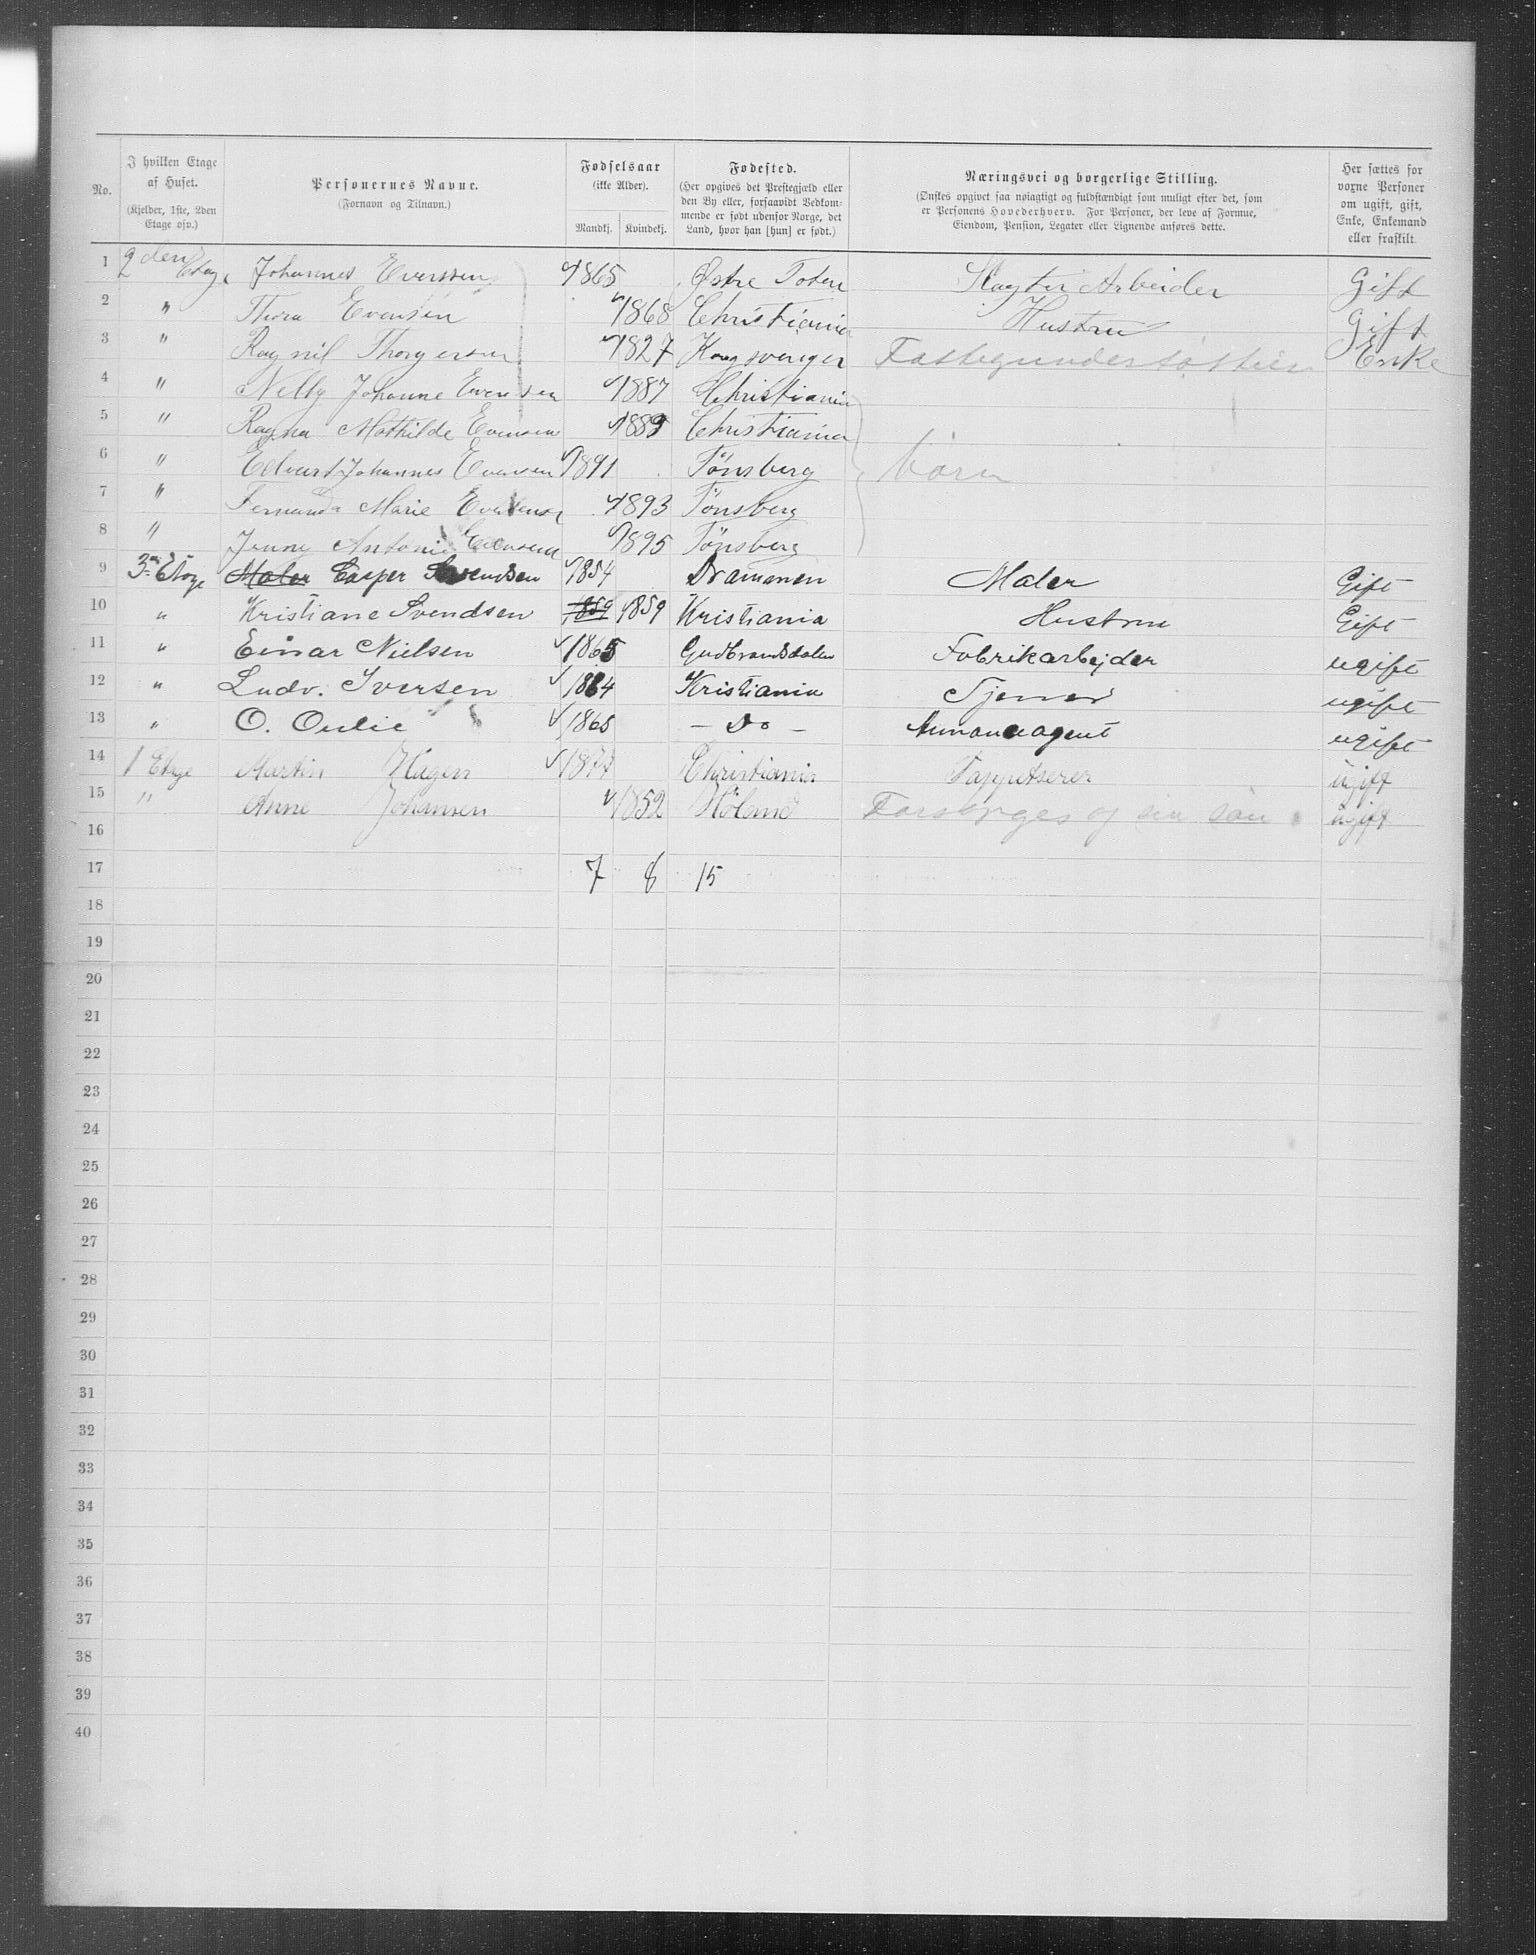 No.
I hvilken Etage af Huset. (Kjelder, 1ste, 2den Etage osv.)
Personernes Navne. (Fornavn og Tilnavn.)
Fødselsaar (ikke Alder). Mandkj. Kvindekj.
Fødested. (Her opgives det Prestegjæld eller den By eller, forsaavidt Vedkommende er født udenfor Norge, det Land, hvor han [hun] er født.)
Næringsvei og borgerlige Stilling. (Ønskes opgivet saa nøiagtigt og fuldstændigt som muligt efter det, som er Personens Hovederhverv. For Personer, der leve af Formue, Eiendom, Pension, Legater eller Lignende anføres dette.
Her sættes for voxne Personer om ugift, gift, Enke, Enkemand eller fraskilt.
1 2den Etage Johannes Evensen 1865 Østre Toten Slagteri Arbeider Gift
2 " Thora Evensen 1868 Christiania Hustru Gift
3 " Ragnil Thorgersen 1827 Kongsvinger Enke
4 " Nelly Johanne Evensen 1887 Christiania
5 " Ragna Mathilde Evensen 1889 Christiania
6 " Edvart Johannes Evensen 1891 Tönsberg börn
7 " Fernanda Marie Evensen 1893 Tönsberg
8 " Jenny Antonie Evensen 1895 Tönsberg
9 3die Etage Maler Casper Svendsen 1854 Drammen Maler Gift
10 " Kristiane Svendsen 1859 1859 Kristiania Hustru Gift
11 " Einar Nielsen 1865 Gudbrandsdalen Fabrikarbejder ugift
12 " Ludv. Iversen 1864 Kristiania Tjener ugift
13 " O. Oulie 1865 - Do - Annonceagent ugift
14 1 Etage Martin Hagen 1877 Christiania Tappetserer ugift
15 " Anne Johansen 1852 Höland Forsörges af sin sön ugift
16
17 7 8 15
18
19
20
21
22
23
24
25
26
27
28
29
30
31
32
33
34
35
36
37
38
39
40